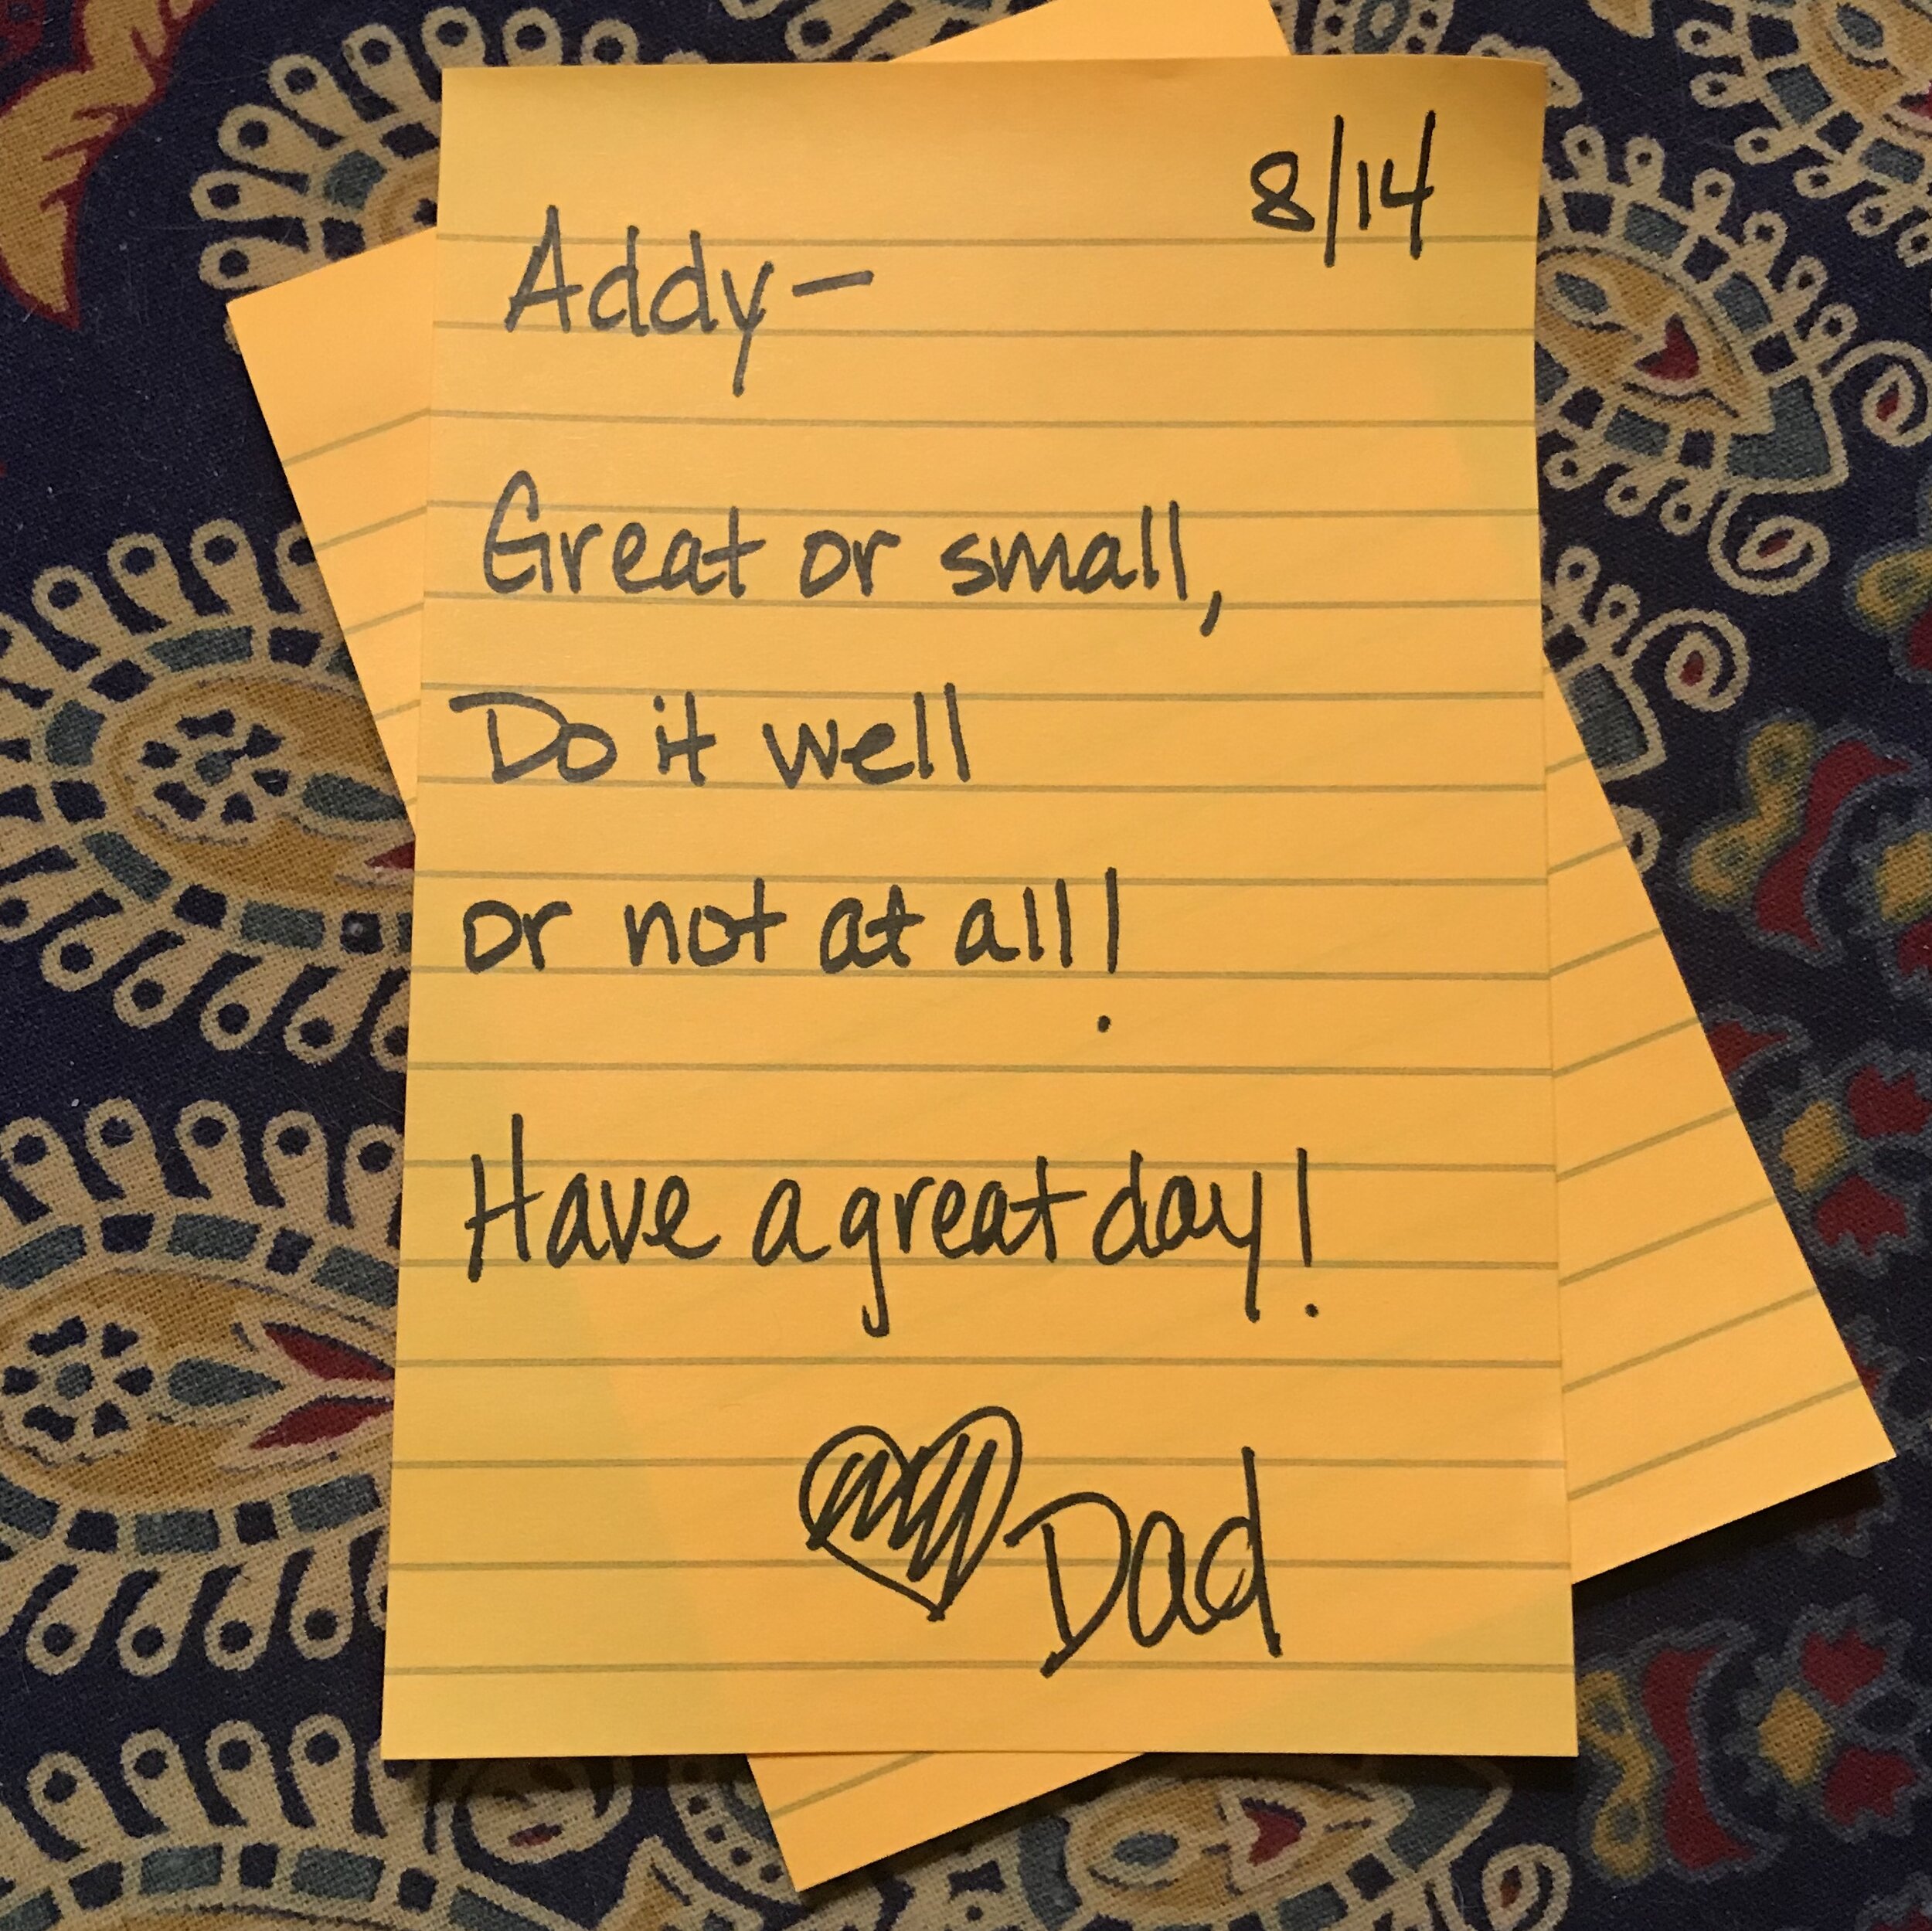 8/14
Addy-
Great or small,
Do it well
or not at all!
Have a great day!
Dad